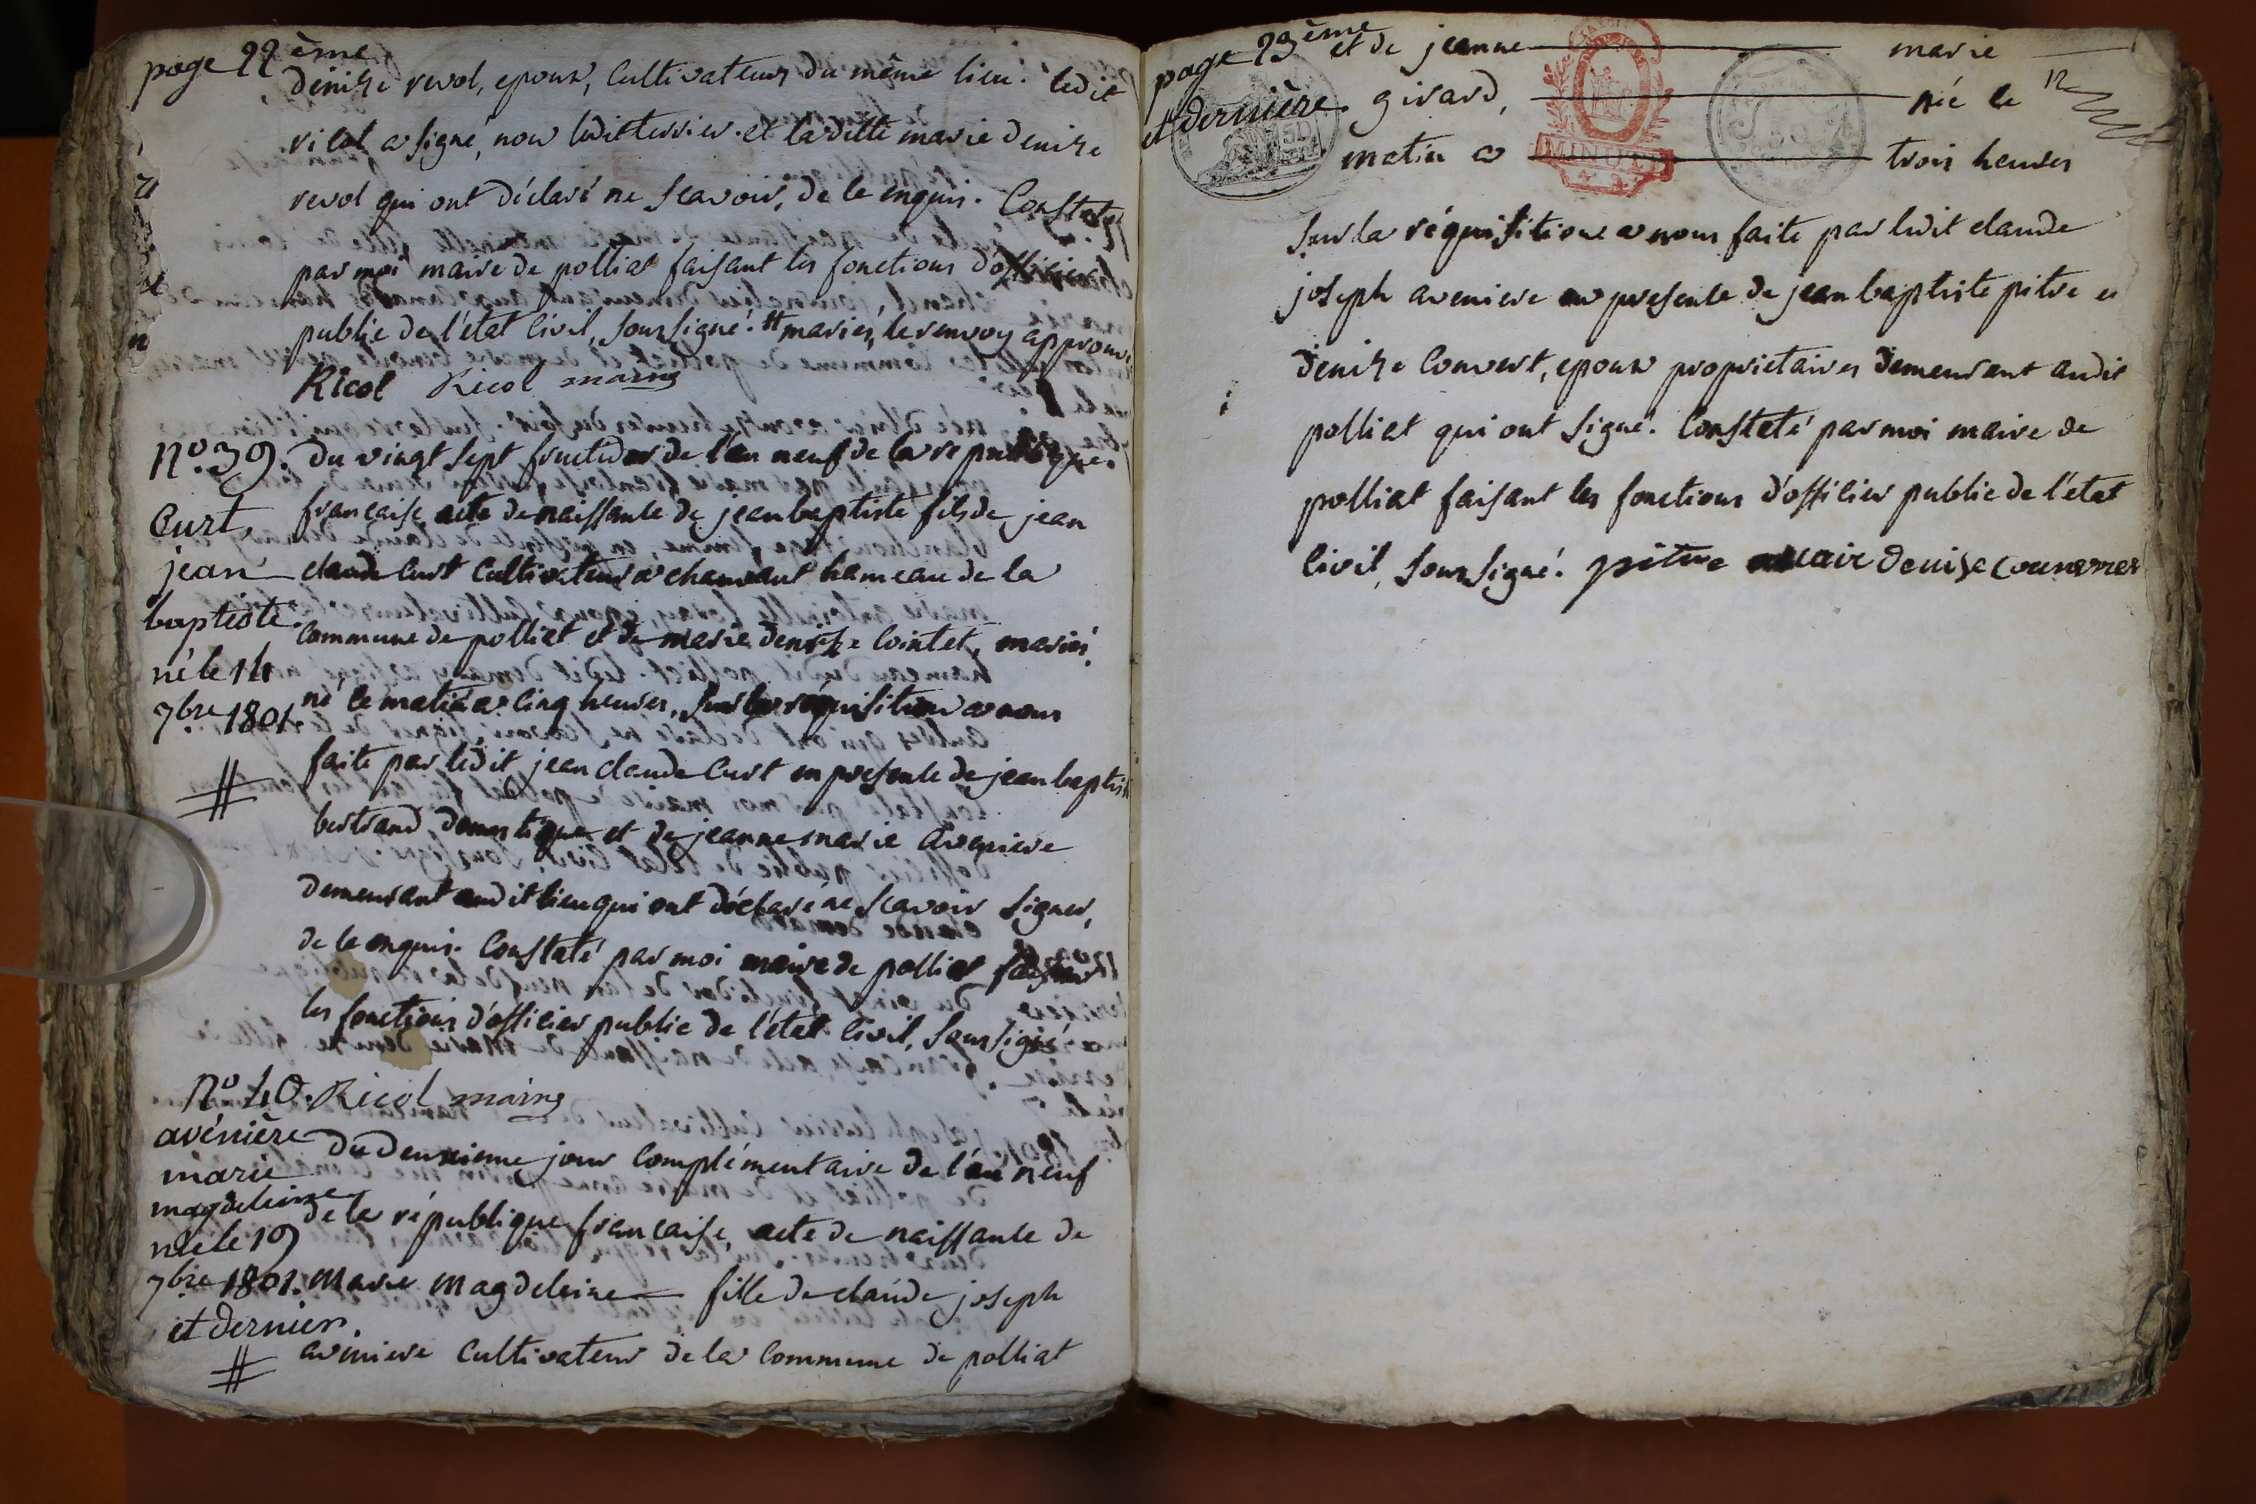 page 22ème
denize revol, epoux, cultivateurs du même lieu. ledit
ricol a signé, non ledit tessier. et laditte marie denize
revol qui ont déclaré ne scavoir, de ce enquis. Constaté
par moi maire de polliat faisant les fonctions d'officier
public de l'état civil, soussigné. # mariés, le renvoy approuvé
Ricol Ricol maire
n.o 39. du vingt sept fructidor de l'an neuf de la republique
Curt, française acte de naissance de jean baptiste fils de jean
jean claude Curt cultivateur a chanvant hameau de la
baptiste. commune de polliat et de marie denize Cointet, mariés,
né le 14
7bre 1801. né le matin a cinq heures, sur la réquisition a nous
faite par ledit jean claude Curt en presence de jean baptiste
#
bertrand domestique et de jeanne marie aveniere
demeurant audit lieu qui ont déclaré ne scavoir signer,
de ce enquis. Constaté par moi maire de polliat faisant
les fonctions d'officier public de l'état civil, soussigné
n.o 40. Ricol maire
avénière du deuxieme jour complémentaire de l'an neuf
marie
magdeleine de la république française, acte de naissance de
née le 19
7bre 1801. marie magdeleine fille de claude joseph
et dernier.
aveniere cultivateur de la commune de polliat
#
page 23ème et de jeanne marie
et dernière. girard, né le
matin a trois heures
MINUTE
sur la réquisition a nous faite par ledit claude
joseph aveniere en presence de jean baptiste pitre et
denize Convert, epoux proprietaires demeurant audit
polliat qui ont signé. Constaté par moi maire de
polliat faisant les fonctions d'officier public de l'état
civil, soussigné. pitre denize